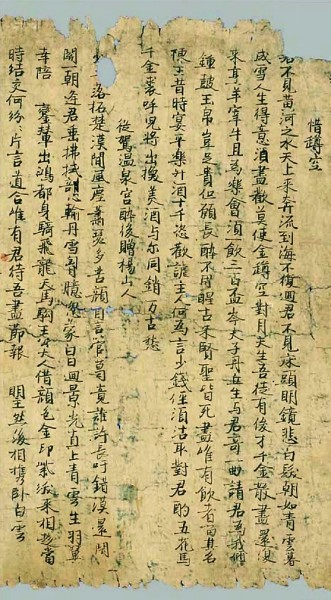 惜罇空
君不見黃河之水天上來奔流到海不復迴君不見床頭明鏡悲白髮朝如青雲暮
成雪人生得意湏盡歡莫使金罇空對月天生吾徒有俊才千金散盡還復
來烹羊宰牛且為樂會湏飲三百盃岑夫子丹丘生与君哥一曲請君為我傾
鍾鼓玉帛豈足貴但願長醉不用醒古來賢聖皆死盡唯有飲者留其名
陳王昔時宴平樂斗酒十千恣歡謔主人何為言少錢俓湏沽取對君酌五花馬
千金裘呼兒將出換美酒与尔同銷万古愁
從駕溫泉宮醉後贈楊山人
落拓楚漢間風塵蕭瑟多苦顏自言管葛竟誰許長吁錯漠還閇
關朝逢君垂拂拭剖心輸丹雪胷臆忽蒙白日迴景光直上青雲生羽翼
幸陪鸞輦出鴻都身騎飛龍天馬駒王公大人借顏色金印紫綬來相趍當
時結交何紛々片言道合唯有君待吾盡節報明主然後相攜臥白雲